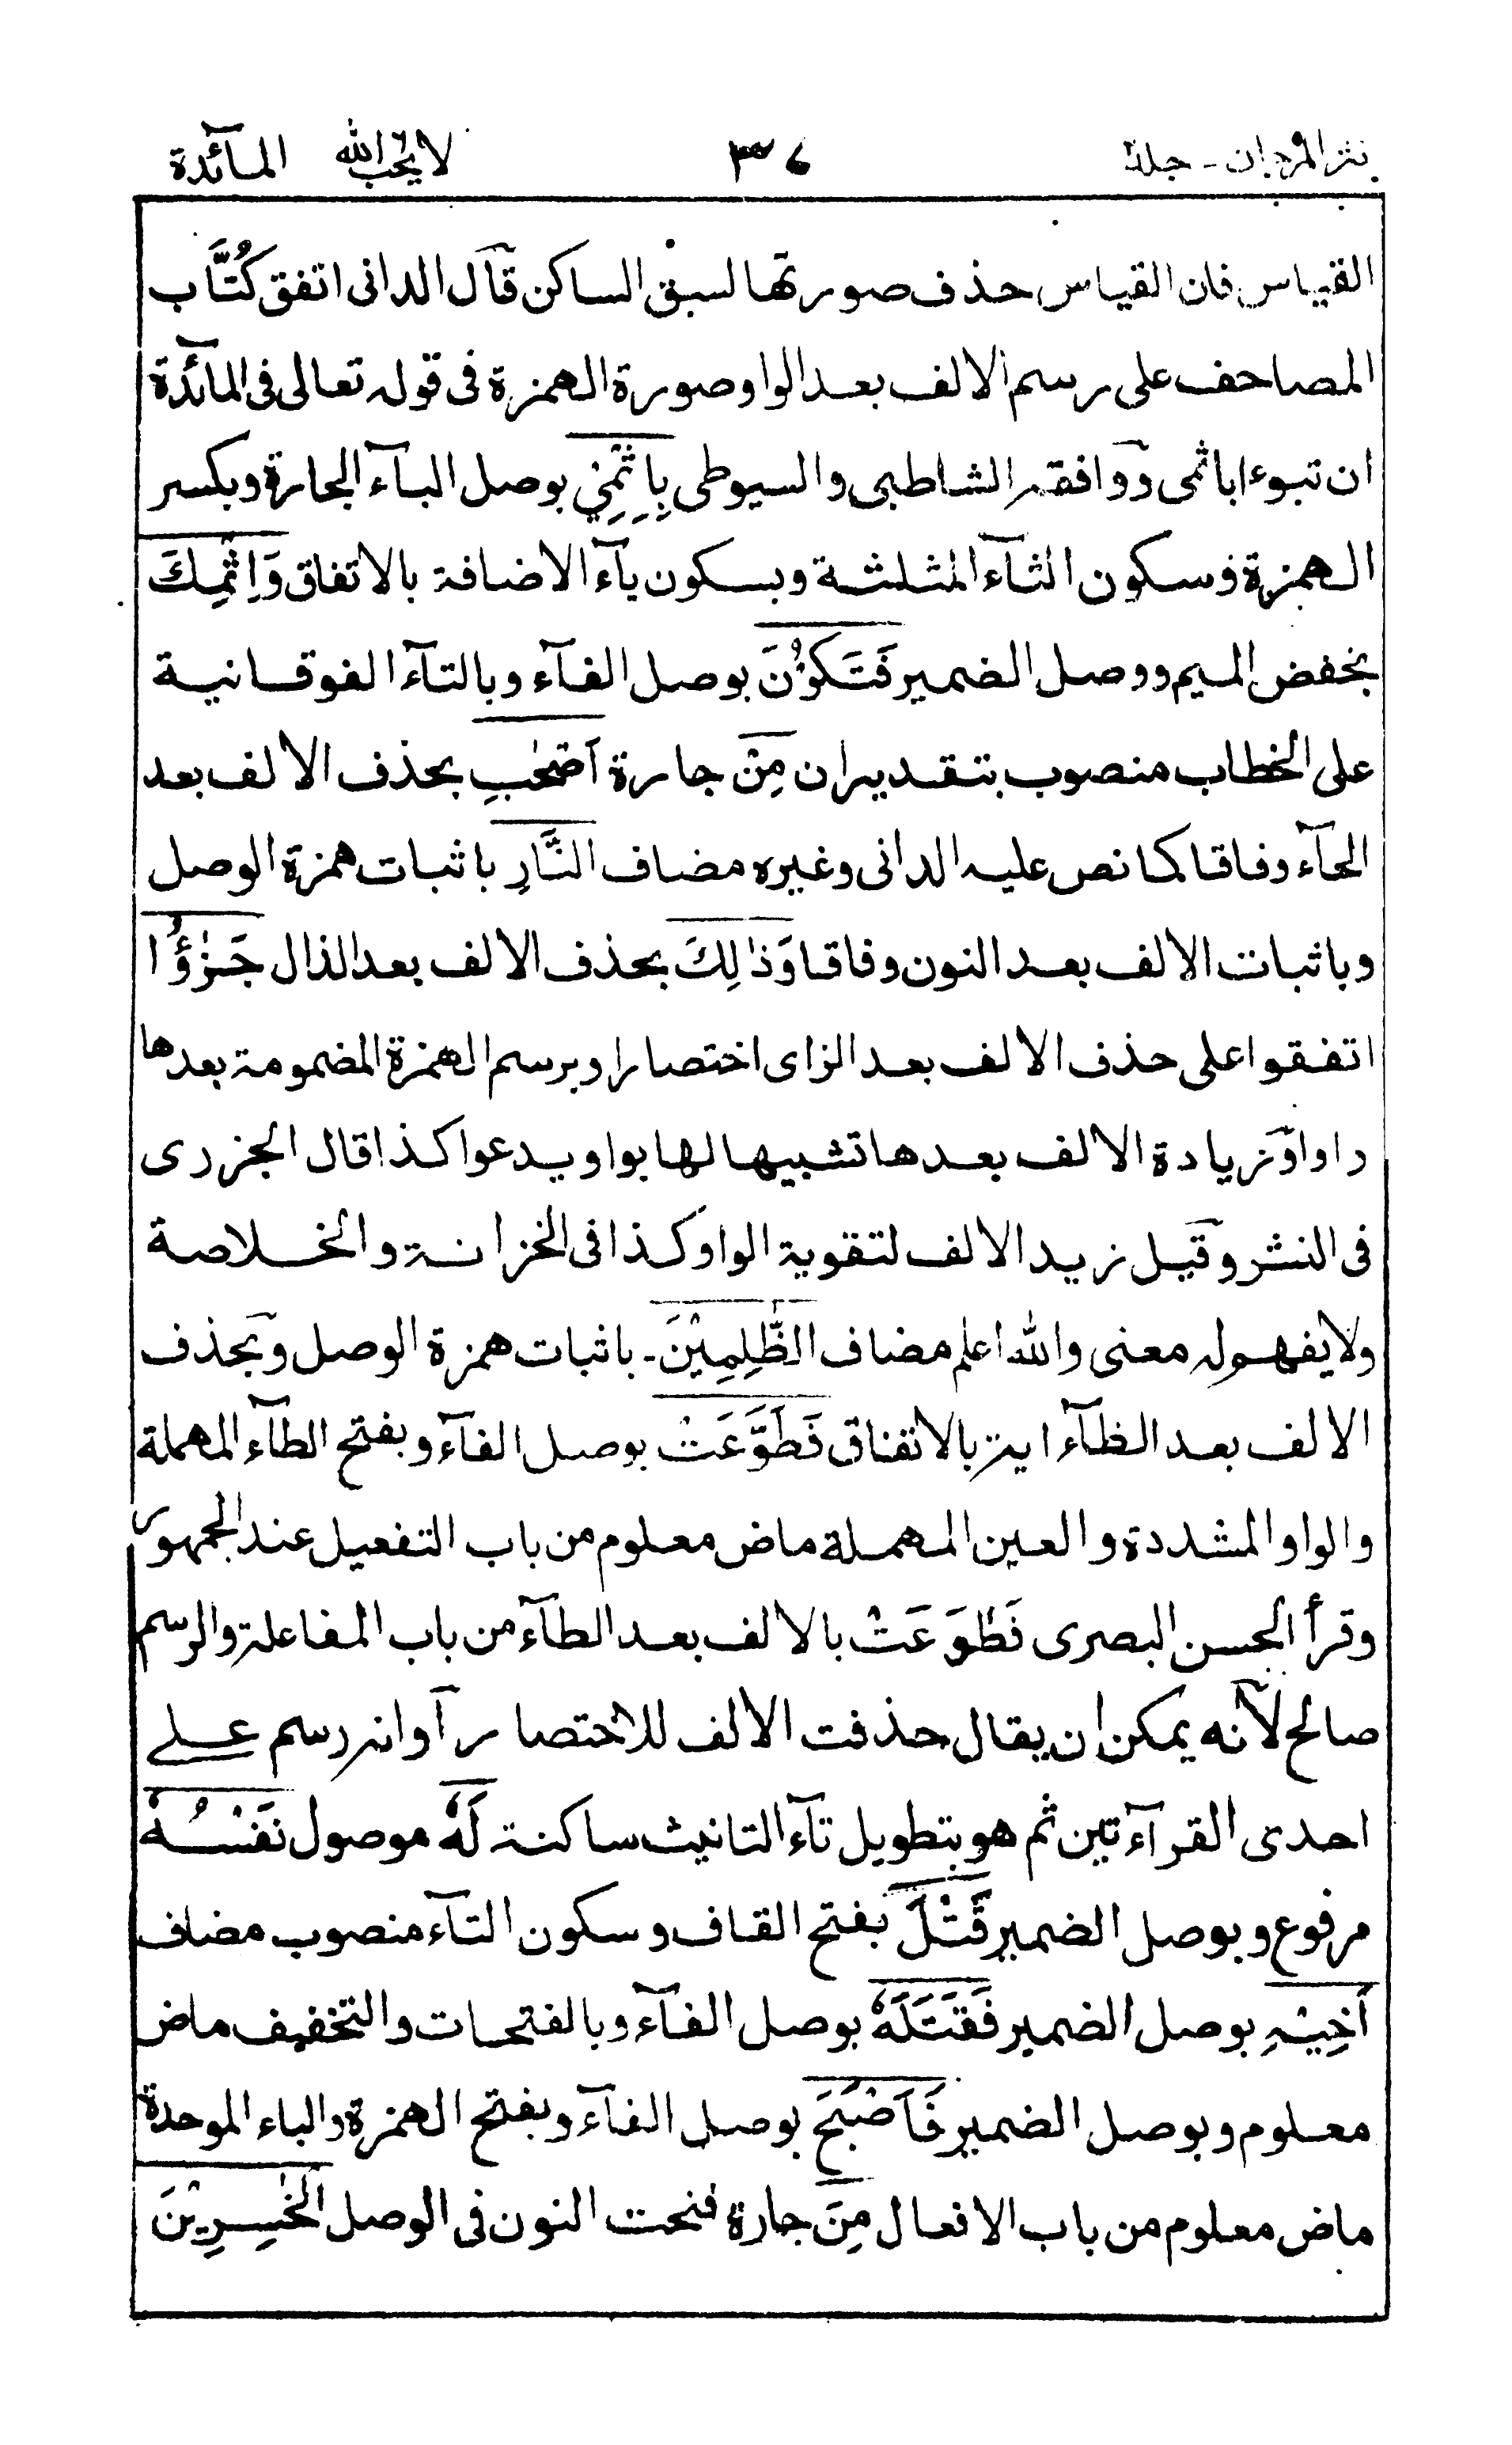 نثر المرجان - جلد ٣٧ لا يحب الله المآئدة
القياس فان القياس حذف صورتها لسبق الساكن قآل الدانى اتفق كُتَّاب
المصاحف على رسم الالف بعد الواو صورة الهمزة فى قوله تعالى فى المآئدة
ان تبوءا باثمى ووافقه الشاطبى والسيوطى بِاِثْمِيْ بوصل البآء الجارة وبكسر
الهمزة وسكون الثآء المثلثة وبسكون يآء الاضافة بالاتفاق وَاِثْمِكَ
بخفض الميم ووصل الضمير فَتَكُوْنَ بوصل الفآء وبالتآء الفوقانية
على الخطاب منصوب بتقدير ان مِنْ جارة اَصْحٰبِ بحذف الالف بعد
الحآء وفاقا كما نص عليه الدانى وغيره مضاف النَّارِ باثبات همزة الوصل
وباثبات الالف بعد النون وفاقا وَذٰلِكَ بحذف الالف بعد الذال جَزٰؤُا
اتفقوا على حذف الالف بعد الزاى اختصارا وبرسم الهمزة المضمومة بعدها
واوا وزيادة الالف بعدها تشبيها لها بواو يدعوا كذا قال الجزرى
فى النشر وقيل زيد الالف لتقوية الواو كذا فى الخزانة والخلاصة
ولا يفهم له معنى والله اعلم مضاف الظّٰلِمِيْنَ - باثبات همزة الوصل وبحذف
الالف بعد الظآء اية بالاتفاق فَطَوَّعَتْ بوصل الفآء وبفتح الطآء المهملة
والواو المشددة والعين المهملة ماض معلوم من باب التفعيل عند الجمهور
وقرأ الحسن البصرى فَطٰوَعَتْ بالالف بعد الطآء من باب المفاعلة والرسم
صالح لأنه يمكن ان يقال حذفت الالف للاختصار آو انه رسم على
احدى القرآءتين ثم هو بتطويل تآء التانيث ساكنة لَهٗ موصول نَفْسُهٗ
مرفوع وبوصل الضمير قَتْلَ بفتح القاف وسكون التآء منصوب مضاف
اَخِيْهِ بوصل الضمير فَقَتَلَهٗ بوصل الفآء وبالفتحات والتخفيف ماض
معلوم وبوصل الضمير فَاَصْبَحَ بوصل الفآء وبفتح الهمزة والباء الموحدة
ماض معلوم من باب الافعال مِنَ جارة فتحت النون فى الوصل الْخٰسِرِيْنَ